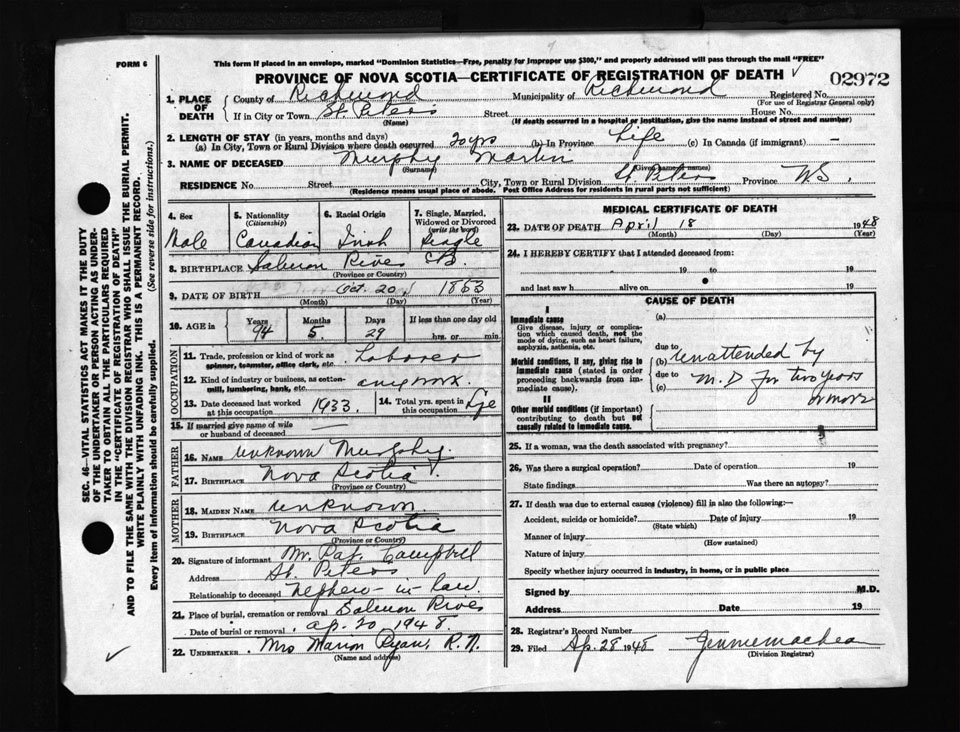 FORM 6
This form if placed in an envelope, marked "Dominion Statistics—Free, penalty for improper use $300," and properly addressed will pass through the mail "FREE"
PROVINCE OF NOVA SCOTIA—CERTIFICATE OF REGISTRATION OF DEATH ✓
02972
1. PLACE OF DEATH { County of Richmond Municipality of Richmond Registered No.
(For use of Registrar General only)
If in City or Town St. Peters Street House No.
(Name) (If death occurred in a hospital or institution, give the name instead of street and number)
2. LENGTH OF STAY (in years, months and days)
(a) In City, Town or Rural Division where death occurred 20 yrs (b) In Province Life (c) In Canada (if immigrant) —
3. NAME OF DECEASED Murphy Martin
(Surname) (Given names or names)
RESIDENCE No. Street City, Town or Rural Division St. Peters Province N.S.
(Residence means usual place of abode. Post Office Address for residents in rural parts not sufficient)
4. Sex 5. Nationality (Citizenship) 6. Racial Origin 7. Single, Married, Widowed or Divorced (write the word)
Male Canadian Irish Single
8. BIRTHPLACE Salmon River CB.
(Province or Country)
9. DATE OF BIRTH Oct. 20 1853
(Month) (Day) (Year)
10. AGE in Years Months Days If less than one day old
94 5 29 hrs. or min.
OCCUPATION
11. Trade, profession or kind of work as spinner, teamster, office clerk, etc. Laborer
12. Kind of industry or business, as cotton-mill, lumbering, bank, etc. any work.
13. Date deceased last worked at this occupation 1933. 14. Total yrs. spent in this occupation Life
15. If married give name of wife or husband of deceased —
FATHER
16. NAME unknown Murphy.
17. BIRTHPLACE Nova Scotia
(Province or Country)
MOTHER
18. MAIDEN NAME unknown.
19. BIRTHPLACE Nova Scotia
(Province or Country)
20. Signature of informant Mr. Pat. Campbell
Address St. Peters
Relationship to deceased nephew-in-law.
21. Place of burial, cremation or removal Salmon River
Date of burial or removal ap. 20 1948.
22. UNDERTAKER Mrs Marion Ryan, R.N.
(Name and address)
MEDICAL CERTIFICATE OF DEATH
23. DATE OF DEATH April 18 1948
(Month) (Day) (Year)
24. I HEREBY CERTIFY that I attended deceased from:
19 to 19
and last saw h alive on 19
CAUSE OF DEATH
I
Immediate cause (a)
Give disease, injury or complication which caused death, not the mode of dying, such as heart failure, asphyxia, asthenia, etc.
due to
Morbid conditions, if any, giving rise to immediate cause (stated in order proceeding backwards from immediate cause).
(b) unattended by
due to
(c) M.D for two years
or more
II
Other morbid conditions (if important) contributing to death but not causally related to immediate cause.
25. If a woman, was the death associated with pregnancy?
26. Was there a surgical operation? Date of operation 19
State findings Was there an autopsy?
27. If death was due to external causes (violence) fill in also the following:—
Accident, suicide or homicide? Date of injury 19
(State which)
Manner of injury
(How sustained)
Nature of injury
Specify whether injury occurred in industry, in home, or in public place
Signed by M.D.
Address Date 19
28. Registrar's Record Number
29. Filed Ap. 28 1948
(Division Registrar)
SEC. 46—VITAL STATISTICS ACT MAKES IT THE DUTY
OF THE UNDERTAKER OR PERSON ACTING AS UNDER-
TAKER TO OBTAIN ALL THE PARTICULARS REQUIRED
IN THE "CERTIFICATE OF REGISTRATION OF DEATH"
AND TO FILE THE SAME WITH THE DIVISION REGISTRAR WHO SHALL ISSUE THE BURIAL PERMIT.
WRITE PLAINLY WITH UNFADING INK. THIS IS A PERMANENT RECORD.
Every item of information should be carefully supplied. (See reverse side for instructions.)
✓